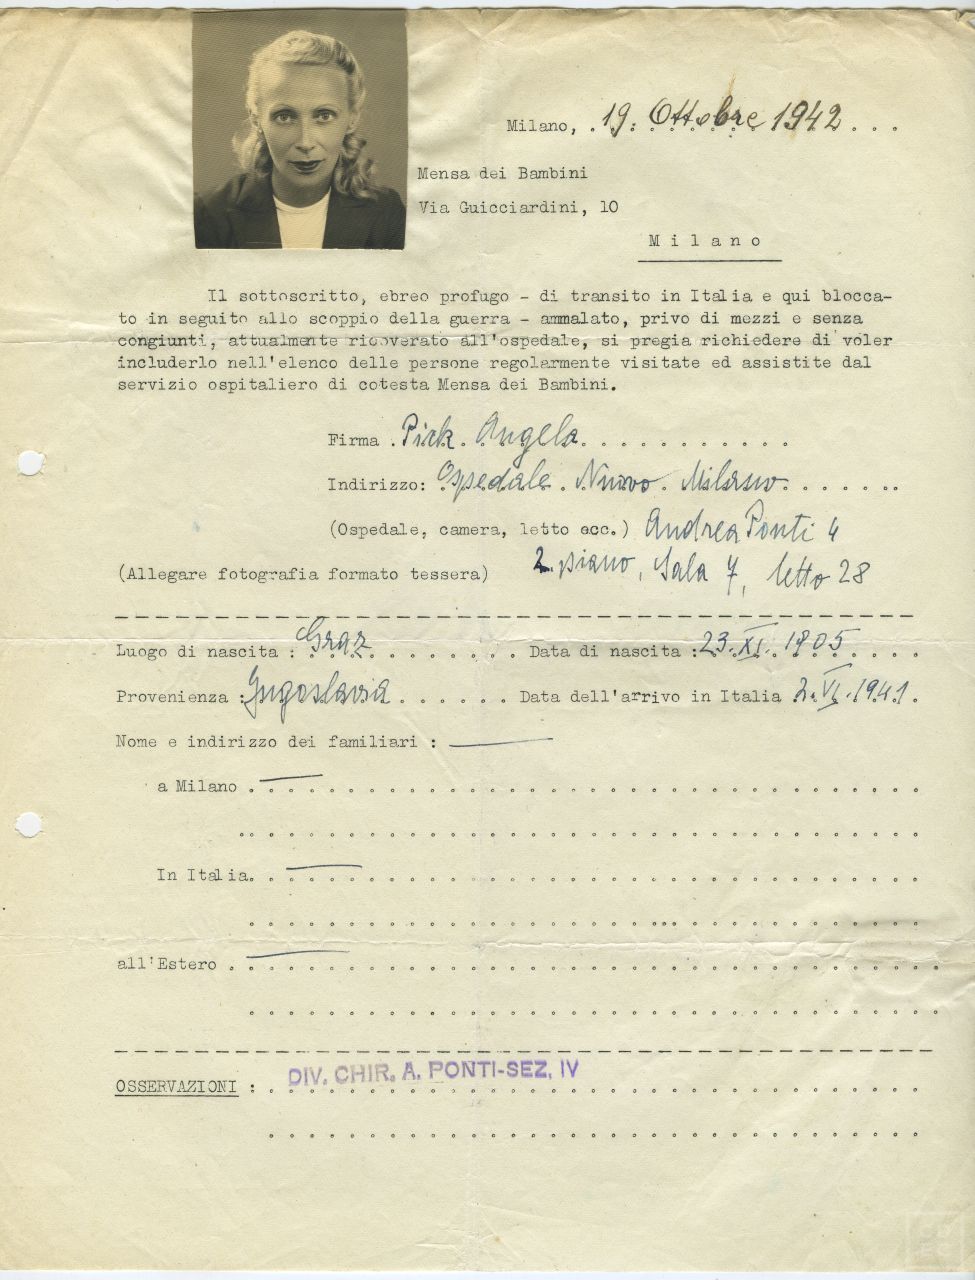 Milano, 19. Ottobre 1942
Mensa dei Bambini
Via Guicciardini, 10
Milano
Il sottoscritto, ebreo profugo - di transito in Italia e qui blocca-
to in seguito allo scoppio della guerra - ammalato, privo di mezzi e senza
congiunti, attualmente ricoverato all'ospedale, si pregia richiedere di voler
includerlo nell'elenco delle persone regolarmente visitate ed assistite dal
servizio ospitaliero di cotesta Mensa dei Bambini.
Firma . Pick Angela
Indirizzo: Ospedale Nuovo Milano
(Ospedale, camera, letto ecc.) Andrea Ponti 4
2. piano, Sala 7, letto 28
(Allegare fotografia formato tessera)
Luogo di nascita : Graz Data di nascita : 23. XI. 1905
Provenienza : Jugoslavia Data dell'arrivo in Italia 2. VI. 1941.
Nome e indirizzo dei familiari : —
a Milano . —
In Italia. —
all'Estero . —
OSSERVAZIONI : DIV. CHIR. A. PONTI-SEZ. IV